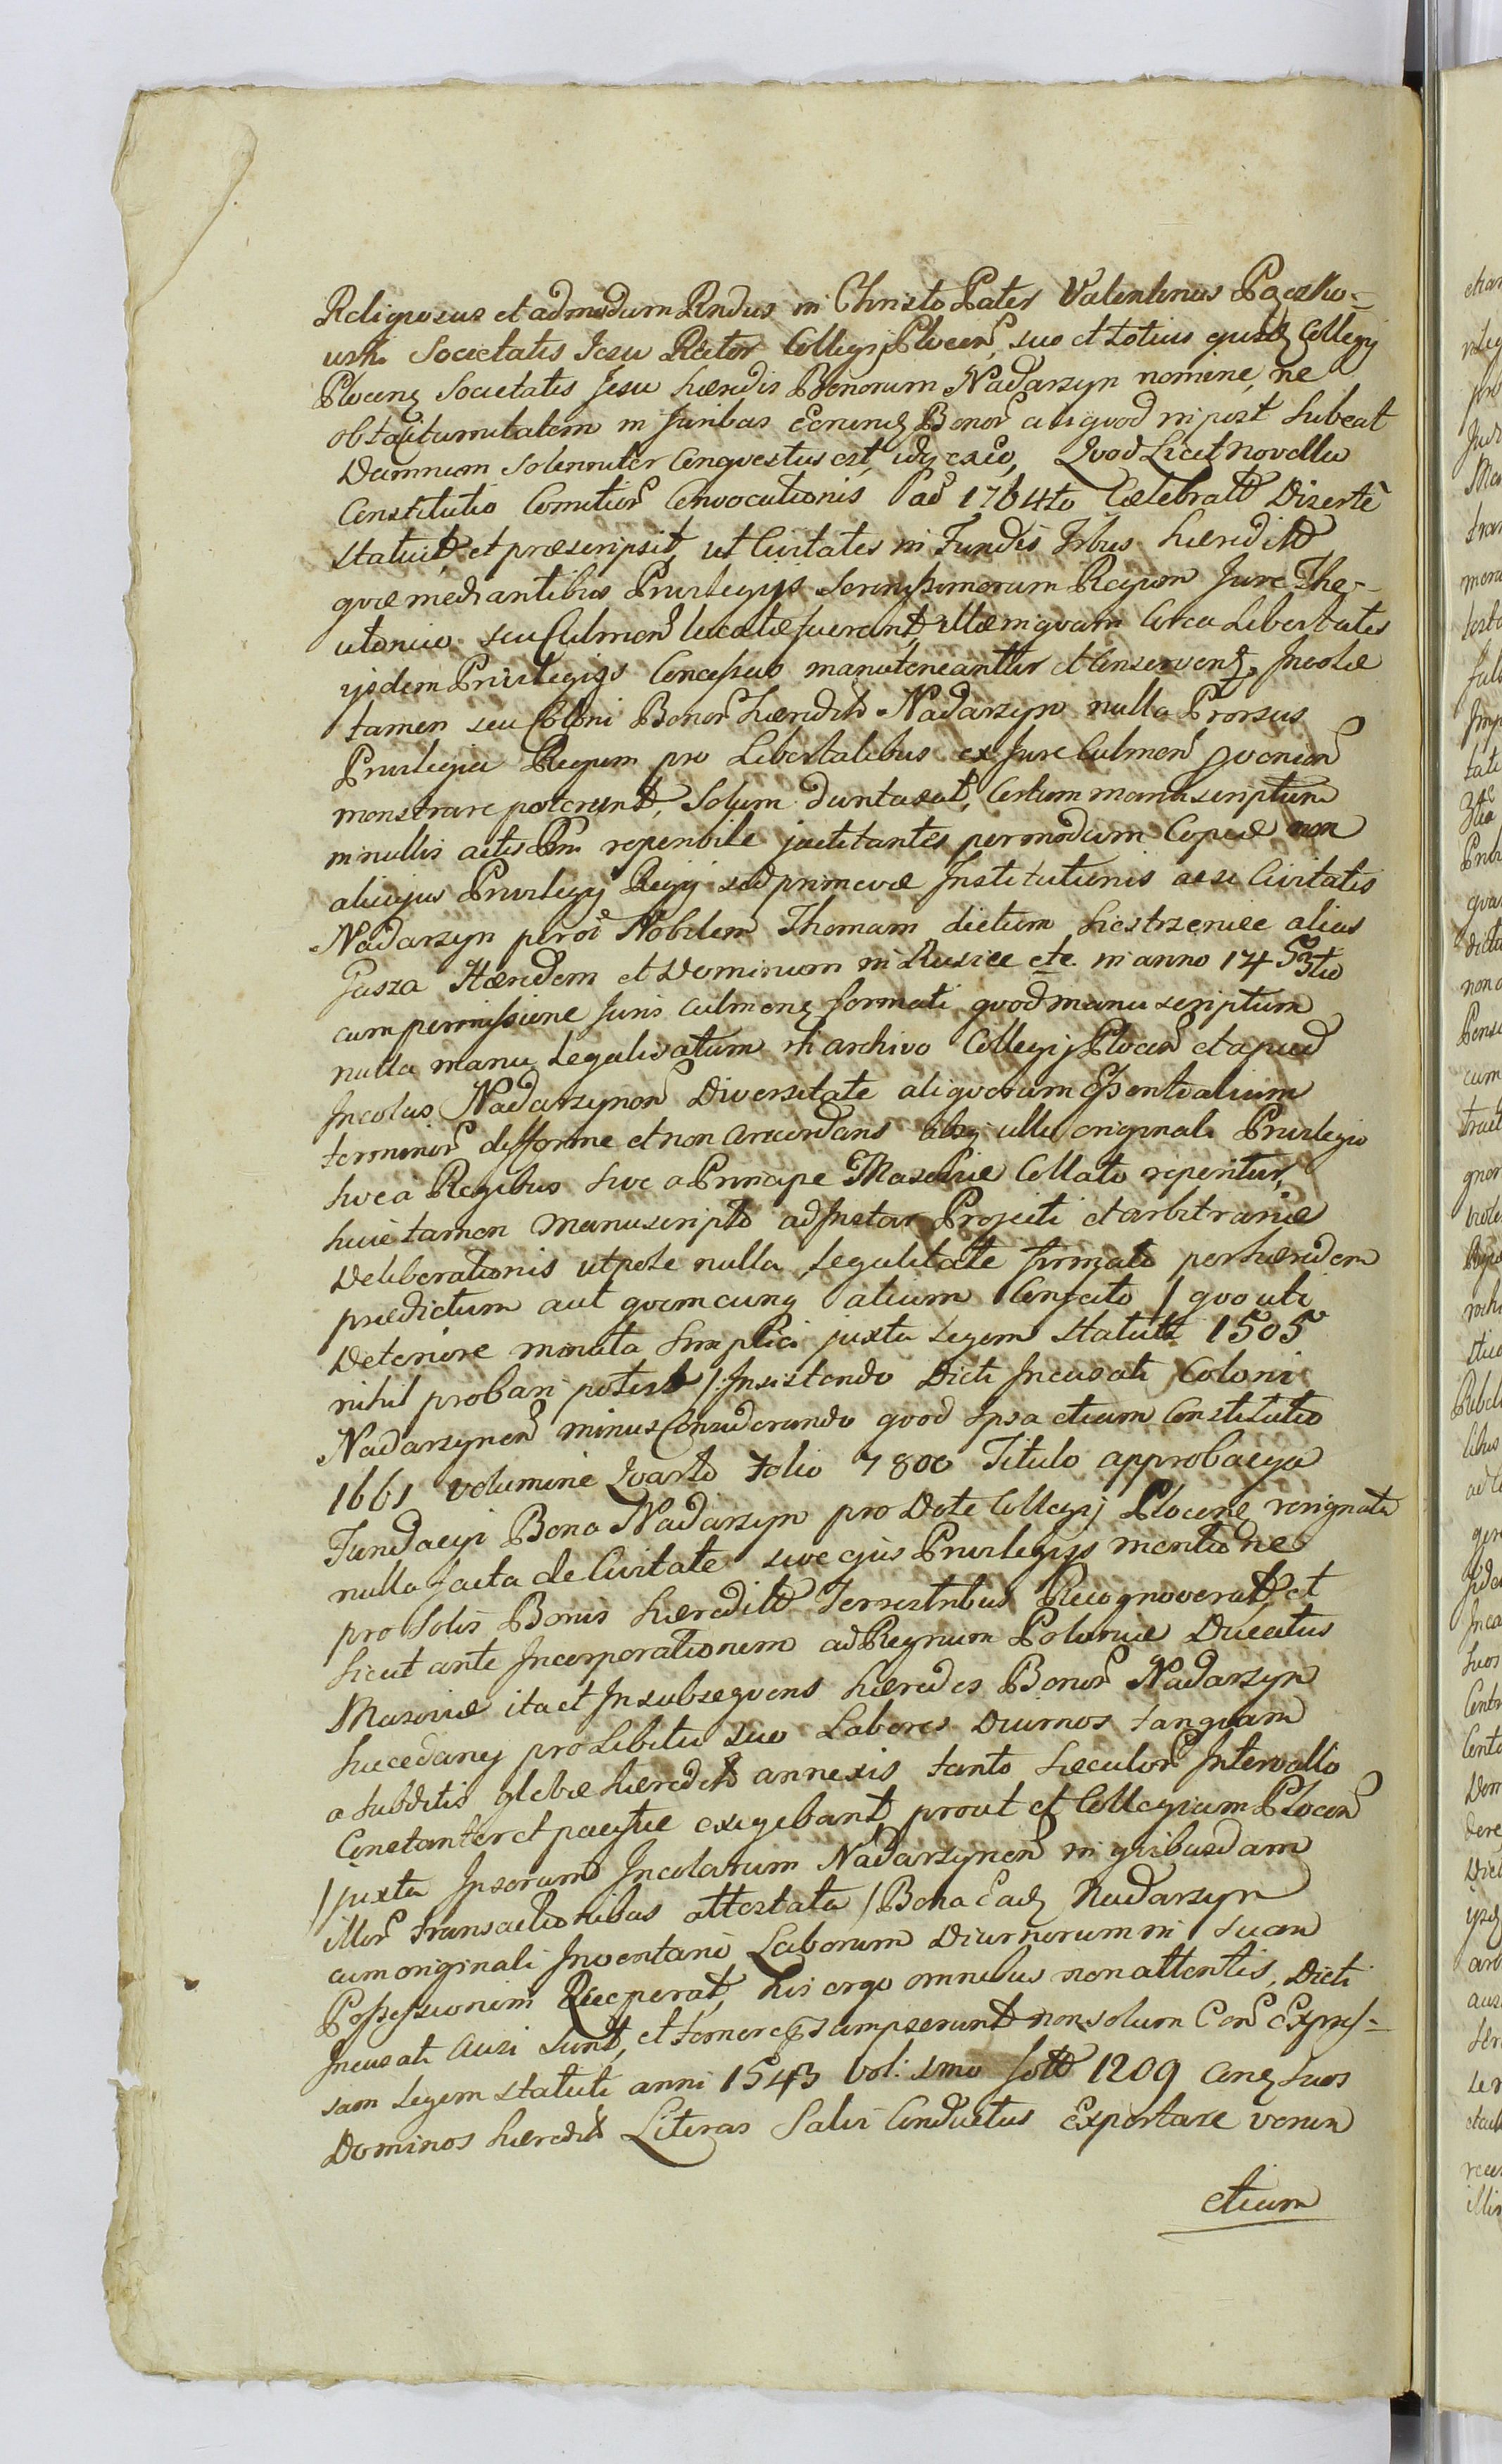 Religiosus et admodum Rndus in Christo Pater Valentinus
uski Societatis Jesu Rector Collegij Plocen, suo et totius ejusdq Collegij
Plocenq Societatis Jesu hæredis Bonorum Nadarzyn nomine, ne
ob taciturnitatem in Juribus eorundq Bonor aliquod in post subeat
Damnum solenniter conquestus est, idq ex eo, Quod Licet novella
Constitutio Comitior Convocationis aõ 1764to Celebratt Diserte
statuit, et præscripsit, ut Civitates in Fundis Trbus hæreditt
quæ mediantibus Privilegijs Serenissimorum Regum Jure The-
utonico seu Culmen locatæ fuerant, illæ in quam circa Libertates
ijsdem Privilegijs Concessas manuteneantur et Conserventq, Incolæ
tamen seu Coloni Bonor hæredith Nadarzyn nulla Prorsus
Privilegia Regum pro Libertatibus ex Jure Culmen
monstrare poterunt, Solum duntaxat, Certum manuscriptum
in nullis actis reperibile jactitantes per modum Copiæ non
alicujus Privilegij Regij sed primævæ Institutionis acsi Civitatis
Nadarzyn Nobilem Thomam dictum Siestrzeniec alias
Gasza Hæredem et Dominum in Rusiec etc. in anno 1453tio
cum permissione Juris culmenq formati, quod manuscriptum
nulla manu Legalisatum in archivo Collegij Plocen et apud
Incolas Nadarzynen Diversitate aliquorum Essentialium
terminor difforme et non Concordans absq ullo originali Privilegio
sive a Regibus sive a Principe Masoviæ Collato reperitur,
huic tamen manuscripto ad Instar Projecti et arbitrariæ
Deliberationis utpote nulla Legalitate firmato per hæredem
prædictum aut quemcunq alium Confecto / quo uti
Deteriore minuta simplici juxta Legem statutt 1505
nihil probari potest / Insistendo Dicti Incusati Coloni
Nadarzynen minus Considerando quod ipsa etiam Constitutio
1661 volumine Quarto Folio 7800 Titulo approbacya
Fundacyi Bona Nadarzyn pro Dote Collegij Plocenq resignata
nulla facta de Civitate sive ejus Privilegijs mentione
pro Solis Bonis hæreditt Terrestribus Recognoverat, et
Sicut ante Incorporationem ad Regnum Poloniæ Ducatus
Masoviæ ita et In subsequens hæredes Bonor Nadarzyn
Succedanej pro Libitu suo Labores Diurnos tanquam
a subditis glebæ hæredith annexis tanto Sæculor Intervallo
Constanter et pacifice exigebant, prout et Collegium Plocen
/ juxta Ipsorum Incolarum Nadarzynen in quibusdam
illor transactionibus attestata / Bona Eadq Nadarzyn
cum originali Inventario Laborum Diurnorum in suam
Possessionem Receperat, his ergo omnibus non attentis, Dicti
Incusati Ausi sunt, et non solum Con Expres-
sam Legem statuti anni 1543 Vol: 1mo 1209 Conq suos
Dominos hæredith Literas Salvi Conductus Exportare verum
etiam